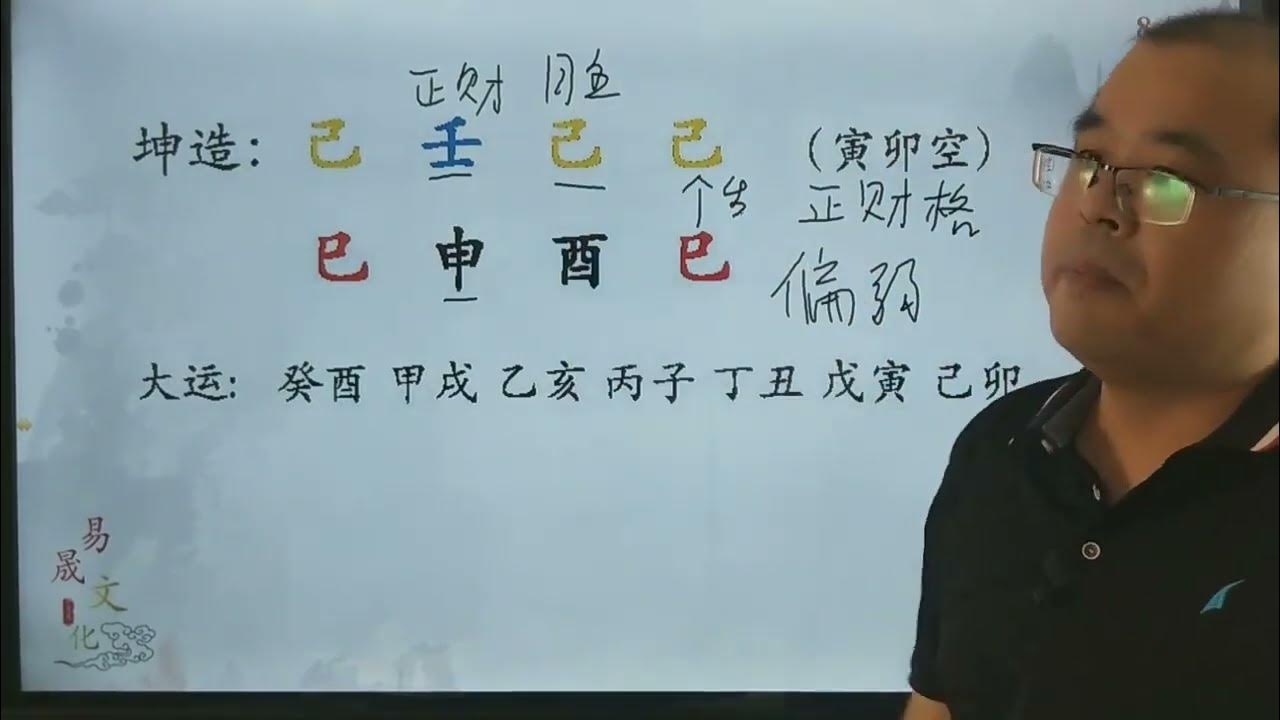 正财
坤造: 己 壬 己 己 (寅卯空)
正财格
巳 申 酉 巳
偏弱
大运: 癸酉 甲戌 乙亥 丙子 丁丑 戊寅 己卯
易晟文化